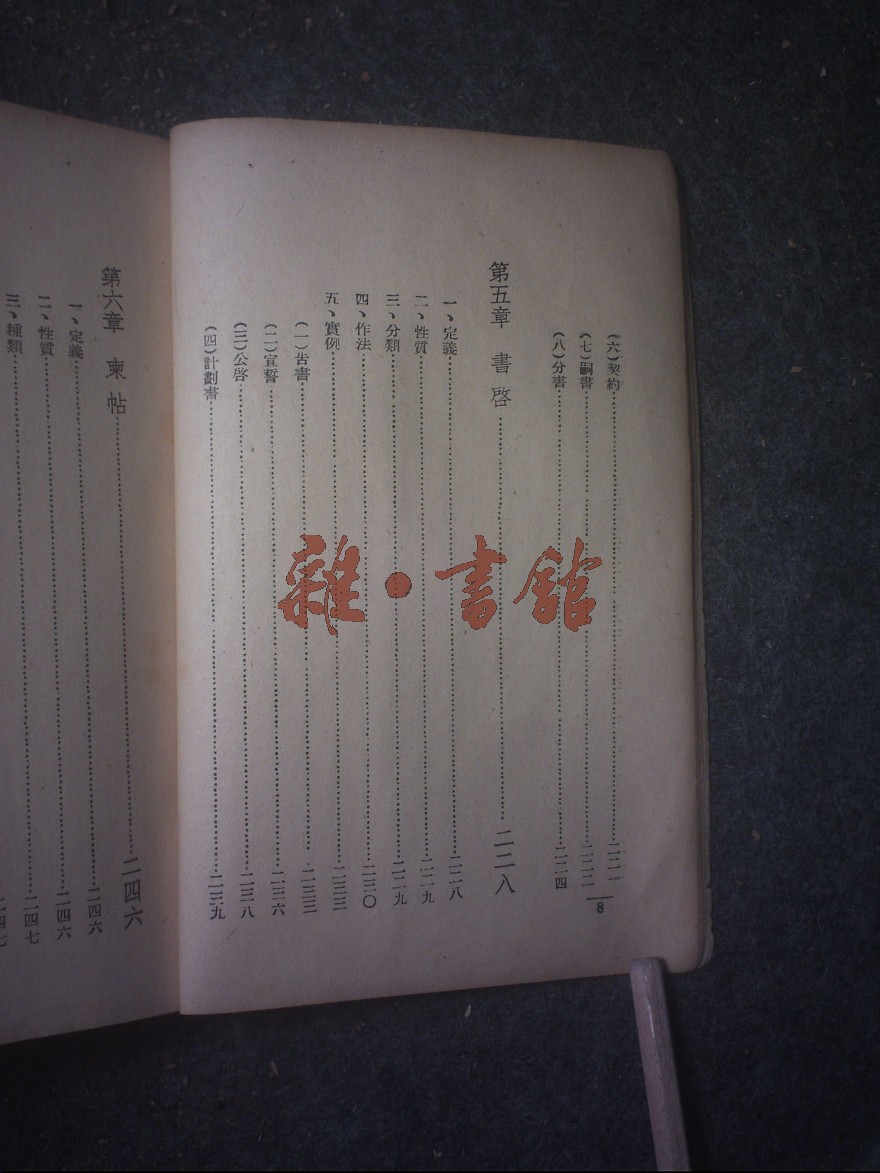 (六)契約……二二一
(七)嗣書……二二三
(八)分書……二二四
第五章 書啓……二二八
一、定義……二二八
二、性質……二二九
三、分類……二二九
四、作法……二三〇
五、實例……二三三
(一)告書……二三三
(二)宣誓……二三六
(三)公啓……二三八
(四)計劃書……二三九
8
第六章 柬帖……二四六
一、定義……二四六
二、性質……二四六
三、種類……二四七
雜·書館